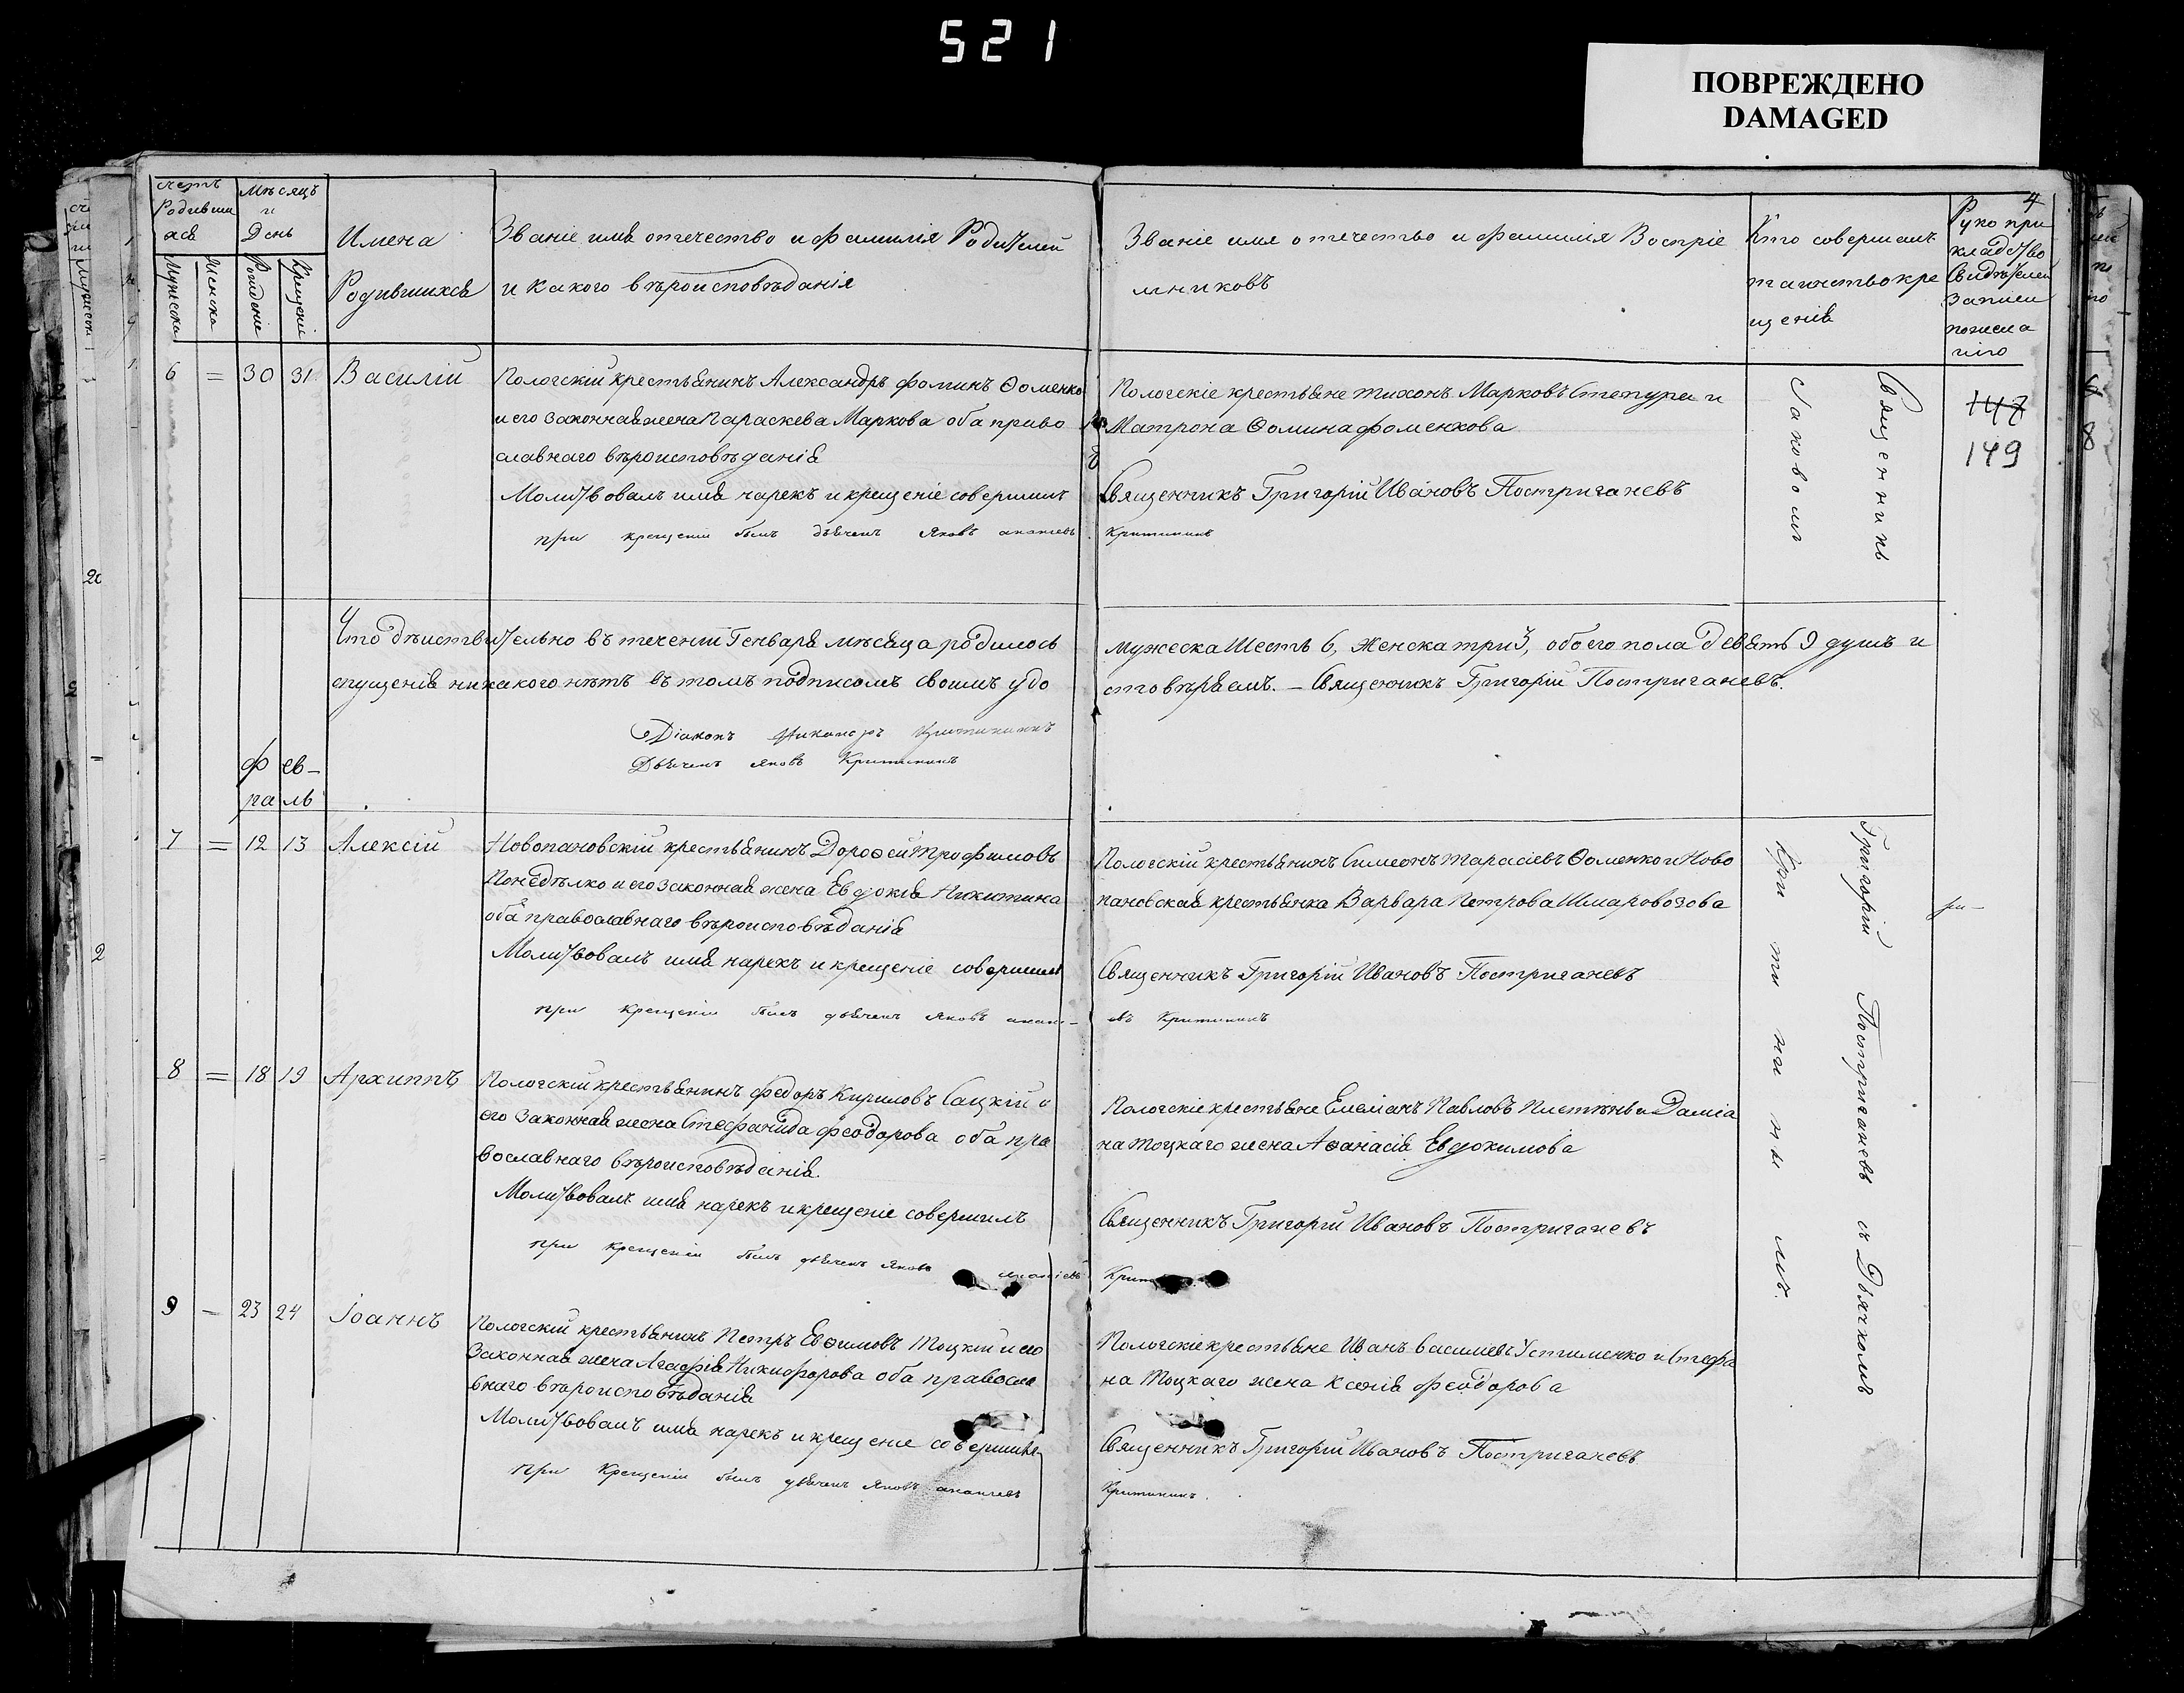 521
ПОВРЕЖДЕНО
DAMAGED
4
счетъ Родившихся
Мужеска
Женска
Мѣсяцъ и День
Рожденіе
Крещеніе
Имена
Родившихся
Званіе имя отечество и фамилія Родителей
и какого вѣроисповѣданія
Званіе имя отечество и фамилія Воспріе
мниковъ
Кто совершалъ
таинство кре
щенія
Руко при
кладство
Свидѣтелей
Записи
по жела
нію
6 = 30 31 Василій
Пологскій крестьянинъ Александръ Фоминъ Ѳоменко
и его законная жена Параскева Маркова оба право
славнаго вѣроисповѣданія
Молитвовалъ имя нарекъ и крещеніе совершилъ
при крещеніи былъ дьячекъ Яковъ ананіевъ
Пологскіе крестьяне Тихонъ Марковъ Степура и
Матрона Ѳомина Фоменкова
Священникъ Григорій Ивановъ Постригачевъ
147
149
Что дѣиствительно въ теченіи Генваря мѣсяца родилось
мужеска Шесть 6, Женска три 3, обоего пола девять 9 душъ и
опущенія никакого нѣтъ въ томъ подписомъ своимъ удо
стовѣряемъ. – Священникъ Григорій Постригачевъ.
Діаконъ
Дьячекъ Яковъ
фев–
раль
7 = 12 13 Алексій
Новопановскій крестьянинъ Дороѳей Трофимовъ
Понедѣлко и его законная жена Евдокія Никитина
оба православнаго вѣроисповѣданія
Молитвовалъ имя нарекъ и крещеніе совершилъ
при крещеніи былъ дьячекъ Яковъ анані–
Пологскій крестьянинъ Симеонъ Тарасіевъ Ѳоменко и Ново
пановская крестьянка Варвара Петрова Шмаровозова
Священникъ Григорій Ивановъ Постригачевъ
евъ
8 = 18 19 Архиппъ
Пологскій крестьянинъ Федоръ Кириловъ Сацкій и
его законная жена Стефанида Феодорова оба пра
вославнаго вѣроисповѣданія.
Молитвовалъ имя нарекъ и крещеніе совершилъ
при крещеніи былъ дьячекъ Яковъ ананіевъ
Пологскіе крестьяне Емеліанъ Павловъ и Даміа
на Тоцкаго жена Аѳанасія Евдокимова
Священникъ Григорій Ивановъ Постригачевъ
9 – 23 24 Іоаннъ
Пологскій крестьянинъ Петръ Евѳимовъ Тоцкій и его
Законная жена Агафія Никифорова оба правосла
внаго вѣроисповѣданія
Молитвовалъ имя нарекъ и крещеніе совершилъ
при Крещеніи былъ дьячекъ Яковъ ананіевъ
Пологскіе крестьяне Иванъ васіліевъ Устименко и Стефа
на Тоцкаго жена Ксенія Феодорова
Священникъ Григорій Ивановъ Постригачевъ
Священникъ Григорій Постригачевъ съ Дьячкомъ
Іаковомъ